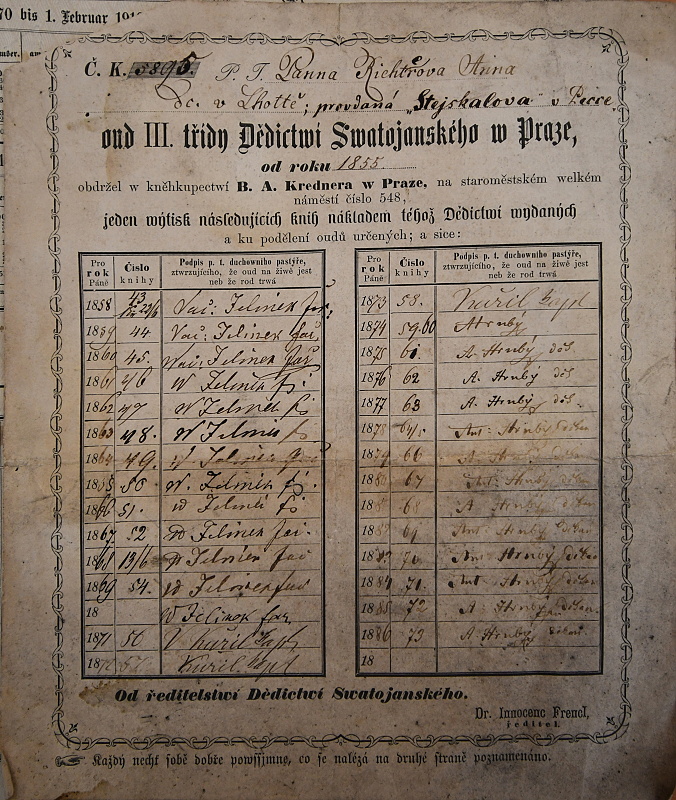 70 bis 1. Februar
Č. K. 5895. P. T. Panna Richtrova Anna
v Lhottě, provdaná „Stejskalova" v Pecce
oud III. třídy Dědictwí Swatojanského w Praze,
od roku 1855.
obdržel w kněhkupectwí B. A. Krednera w Praze, na staroměstském welkém
náměstí číslo 548,
jeden wýtisk následujících knih nákladem téhož Dědictwí wydaných
a ku podělení oudů určených; a sice:
Pro rok Páně
Číslo knihy
Podpis p. t. duchowního pastýře, ztwrzujícího, že oud na žiwě jest neb že rod trwá
1858 43 Vac: Jelínek far.
1859 44 Vac: Jelinek far
1860 45. Vac: Jelinek far
1861 46 W Jelinek
1862 47 W Jelinek
1863 48. W Jelinek
1864 49. W Jelinek
1865 50. W. Jelinek
1866 51. W Jelinek
1867 52 W Jelinek far.
1868 13/6 W Jelinek far
1869 54. W Jelinek far
18 W Jelinek far
1871 56 Kuřil Kapl
1872 57 Kuřil Kapl
Pro rok Páně
Číslo knihy
Podpis p. t. duchowního pastýře, ztwrzujícího, že oud na žiwě jest neb že rod trwá
1873 58. Kuřil Kapl
1874 59.60 A Hrubý
1875 61 A. Hrubý děk.
1876 62 A. Hrubý děk.
1877 63 A. Hrubý děk.
1878 Ant: Hrubý
1879 66 A. Hrubý
1880 67 Ant: Hrubý
188 68 A Hrubý
1882 69 Ant: Hrubý děkan
1883 70 Ant: Hrubý děkan
1884 71. Ant: Hrubý děkan
1885 72 A. Hrubý děkan
1886 73 A Hrubý děkan
18
Od ředitelstwí Dědictwí Swatojanského.
Dr. Innocenc Frencl,
ředitel.
Každý nechť sobě dobře powšimne, co se nalézá na druhé straně poznamenáno.